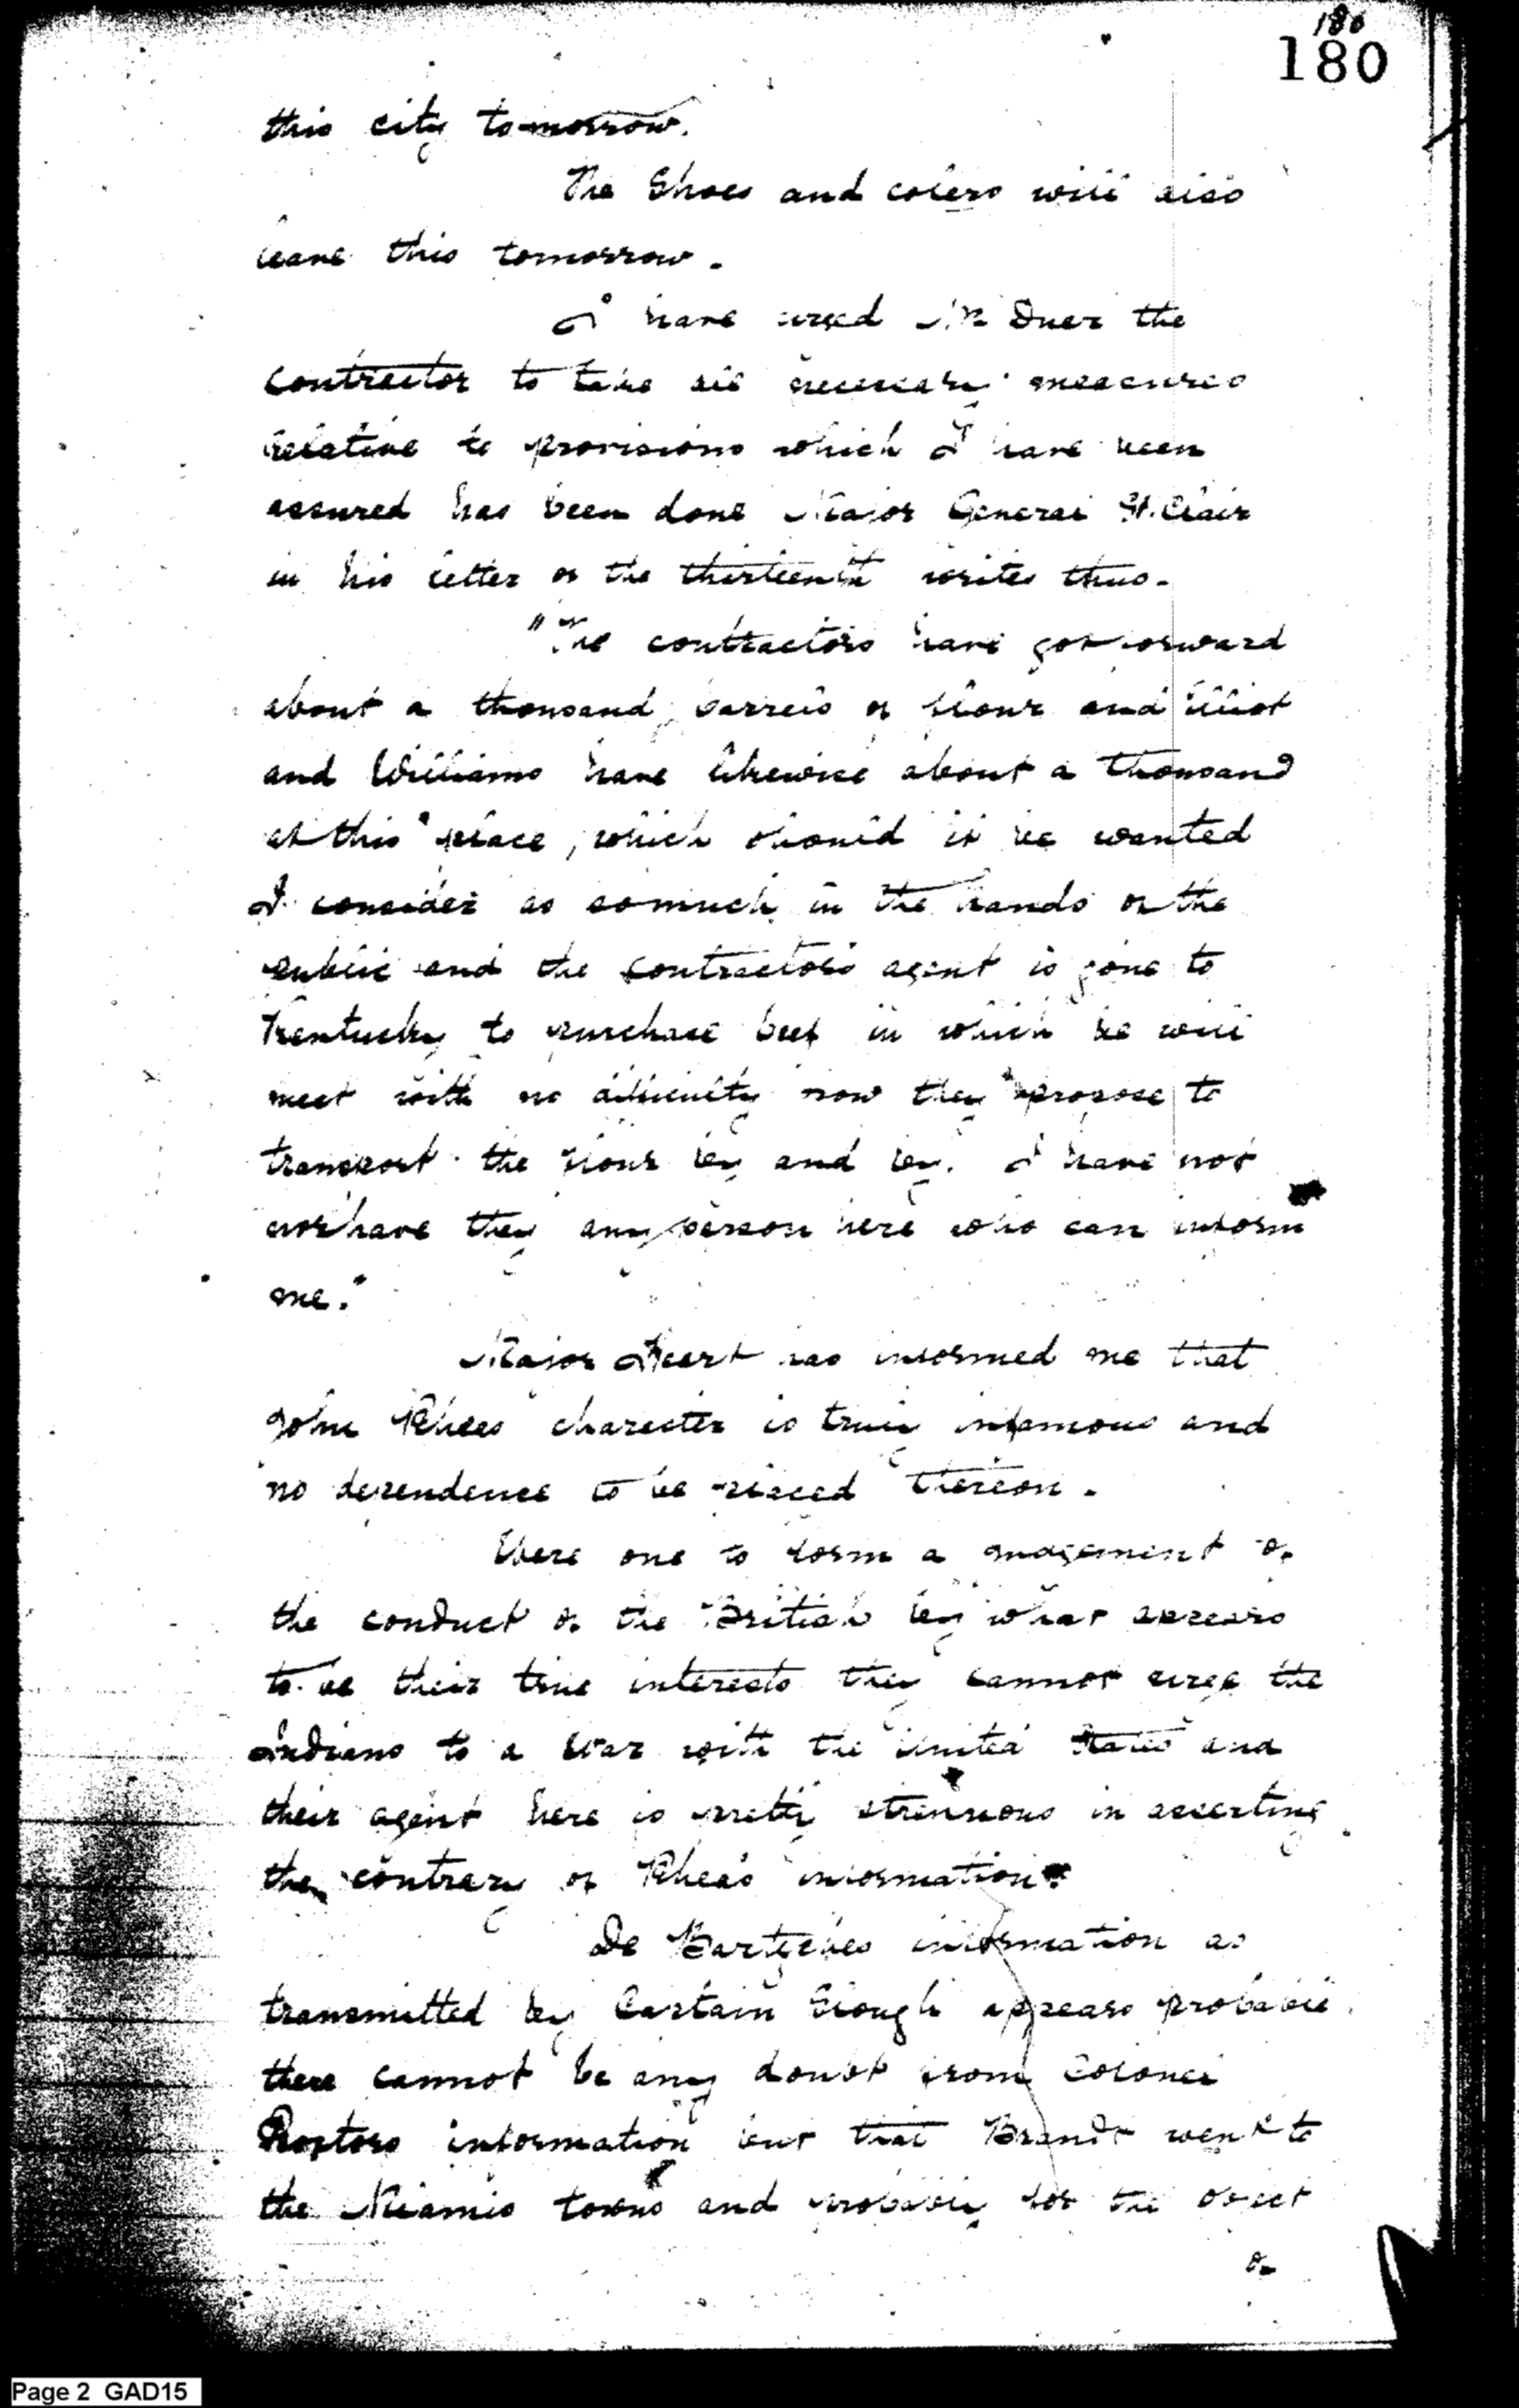 180
180
this city tomorrow.
The Shoes and colers will also
leave this tomorrow.
I have urged Mr Duer the
Contractor to take all necessary measures
relative to provisions which I have been
assured has been done Major General St. Clair
in his letter of the thirteenth writes thus.
"The contractors have got forward
about a thousand barrels of flour and Elliot
and Williams have likewise about a thousand
at this place, which should it be wanted
I consider as somuch in the hands of the
public and the Contractors agent is gone to
Kentucky to purchase beef in which he will
meet with no difficulty now they propose to
transport the flour by and by. I have not
nor have they any person here who can inform
me."
Major Heart has informed me that
John Rhees character is truly infamous and
no dependence to be placed thereon.
Were one to form a judgement of
the conduct of the British by what appears
to be their true interests they cannot urge the
Indians to a War with the United States and
their agent here is pretty strenuous in asserting
the contrary of Rhea's information.
De information as
transmitted by Captain Hough appears probable
there cannot be any doubt from Colonel
Proctors information but that Brandt went to
the Miamis towns and probably for the object
of
Page 2 GAD15